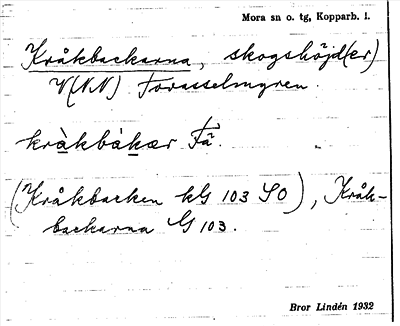 Mora sn o. tg, Kopparb. l.
Kråkbackarna, skogshöjd(er)
V(NV) Forasselmyren.
kràkbàkær Fä.
(Kråkbacken kG 103 SO), Kråk-
backarna G 103.
Bror Lindén 1932